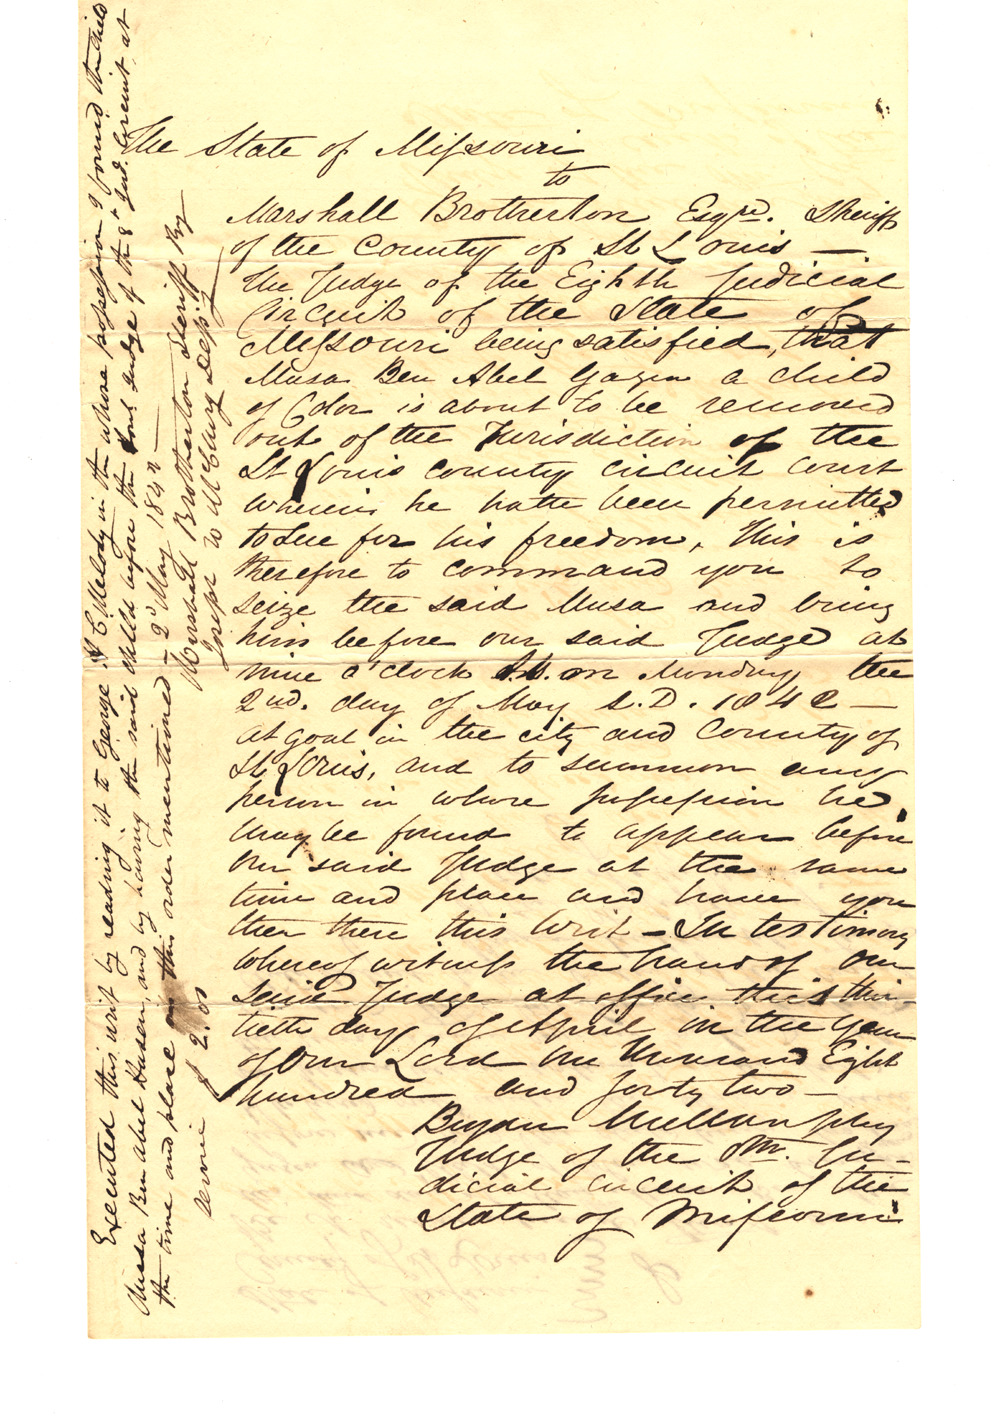 The State of Missouri
to
Marshall Brotherton Esqre. Sheriff
of the County of St Louis —
The Judge of the Eighth Judicial
Circuit of the State of
Missouri being satisfied, that
Musa Ben Abel Gazen a child
of Color is about to be removed
out of the Jurisdiction of the
St Louis County Circuit Court
wherein he hath been permitted
to sue for his freedom, This is
therefore to command you to
seize the said Musa and bring
him before our said Judge at
nine o'clock A.M. on Monday the
2nd. day of May A.D. 1842 —
at goal in the city and County of
St Louis, and to summon any
person in whose possession he
may be found to appear before
our said Judge at the same
time and place and have you
then there this Writ — In testimony
whereof witness the hand of our
said Judge at office this thir-
tieth day of April in the year
of Our Lord One Thousand Eight
hundred and forty two —
Bryan Mullanphy
Judge of the 8th. Ju-
dicial Circuit of the
State of Missouri
Executed this writ by reading it to George A C Melody in whose possession I found the child
Musa Ben Abel Gazen, and by having the said child before the Hon Judge of the 8th Jud. Circuit at
the time and place in this order mentioned — 2d May 1842 —
Marshall Brotherton Sheriff By
Joseph W McClurg Depty
Service $ 2.00